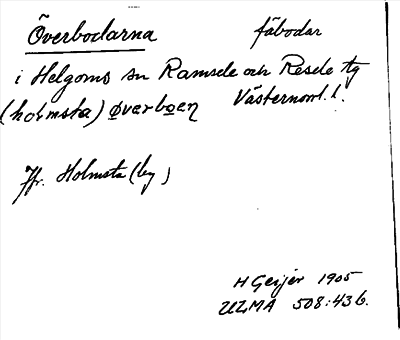 Överbodarna fäbodar
i Helgoms sn Ramsele och Resele tg
(holmsta) øvərboen Västernorrl. l.
Jfr. Holmsta (by)
H Geijer 1905
ULMA 508:436.